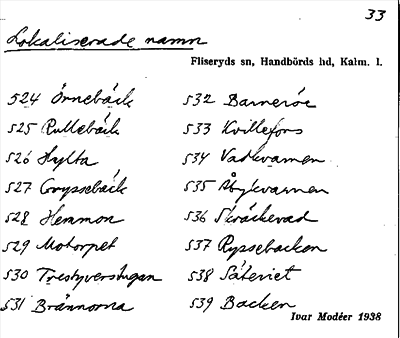 33
Lokaliserade namn
Fliseryds sn, Handbörds hd, Kalm. l.
524 Örnebäck
525 Rullebäck
526 Hylta
527 Gryssebäck
528 Hemmon
529 Motorpet
530 Trestyverstugan
531 Brännorna
532 Barneröe
533 Kvillefors
534 Vadkvarnen
535 Åbykvarnen
536 Skräckevad
537 Ryssebacken
538 Säteriet
539 Backen
Ivar Modéer 1938